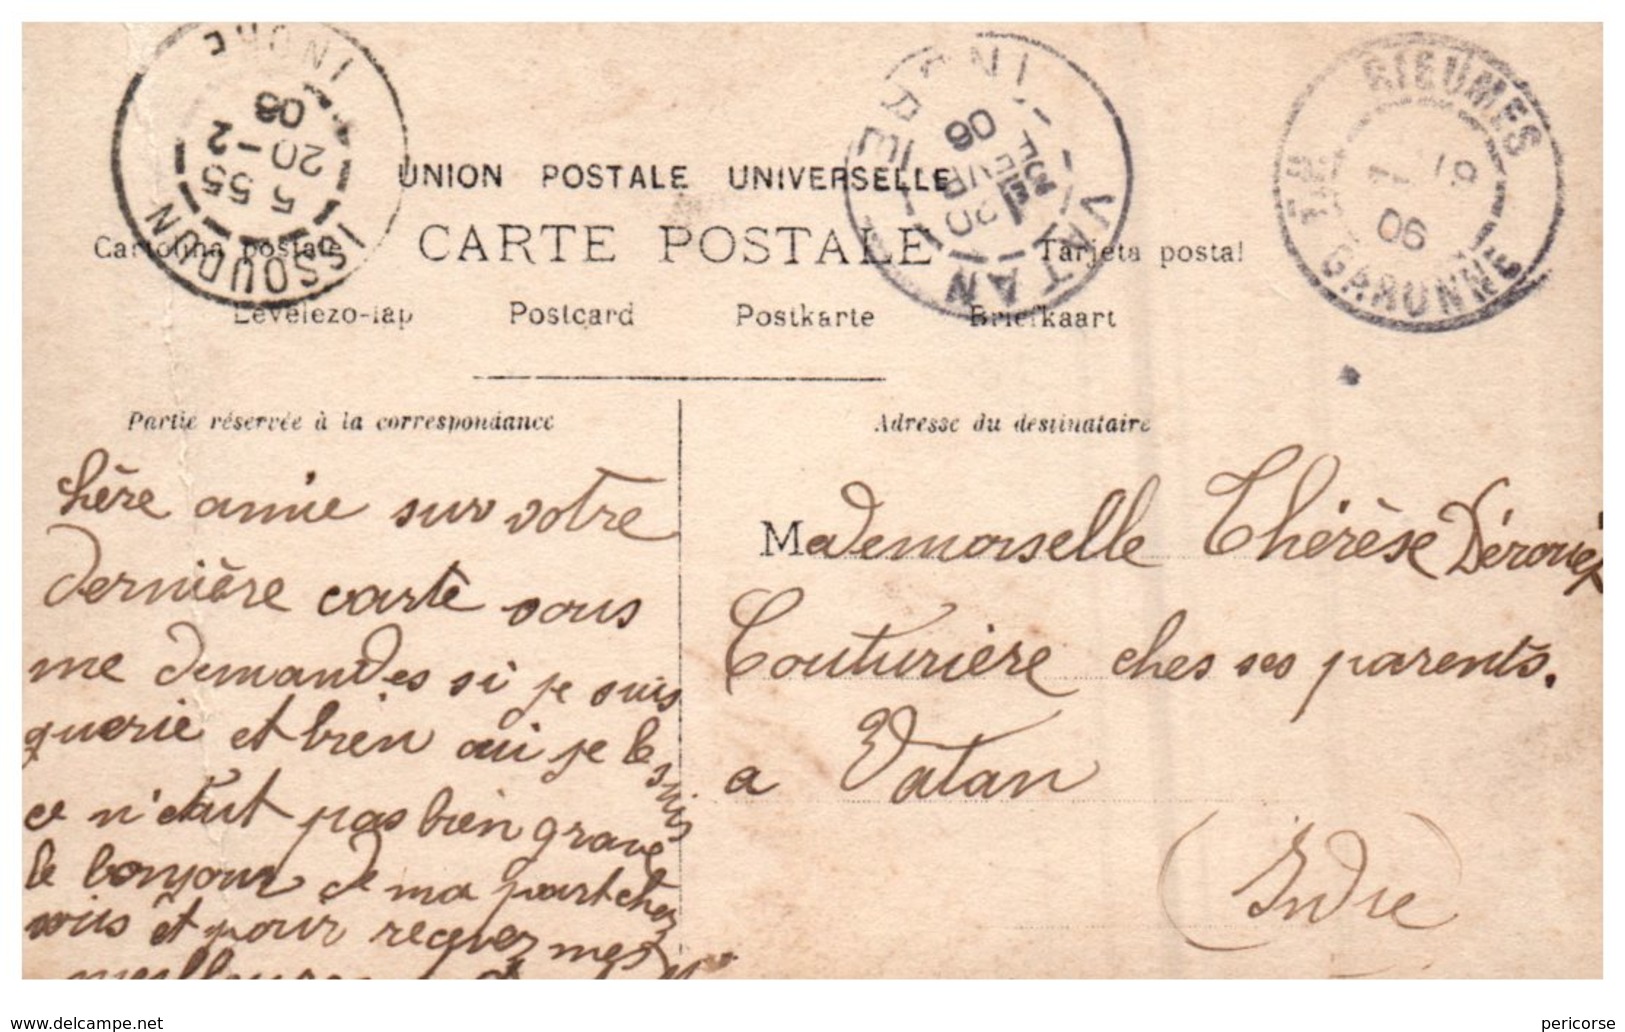 INDRE
5 55
20-2
06
ISSOUDUN
INDRE
20
FEVR
06
VATAN
RIEUMES
19
06
HTE GARONNE
UNION POSTALE UNIVERSELLE
CARTE POSTALE
Cartolina postale
Tarjeta postal
Levelezo-lap
Postcard
Postkarte
Briefkaart
Partie réservée à la correspondance
chère amie sur votre
dernière carte vous
me demandes si je suis
guerie et bien oui je le suis
ce n'etait pas bien grave
le bonjour de ma part chez
vous et pour recever mes
meilleures
Adresse du destinataire
Mademoiselle Thérèse
Couturière ches ses parents.
a Vatan
(Indre)
www.delcampe.net
pericorse